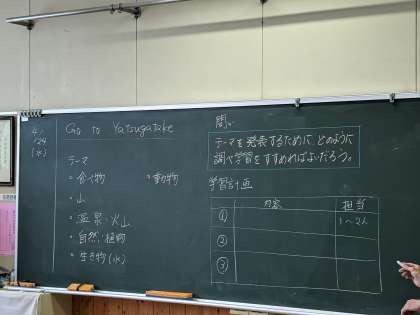 4/24
(水)
Go to Yatsugatake
テーマ
・食べ物
・動物
・山
・温泉・火山
・自然・植物
・生き物(水)
問い
テーマを発表するために どのように
調べ学習をすすめればよいだろう。
学習計画
内容 担当
①
1~2人
②
③